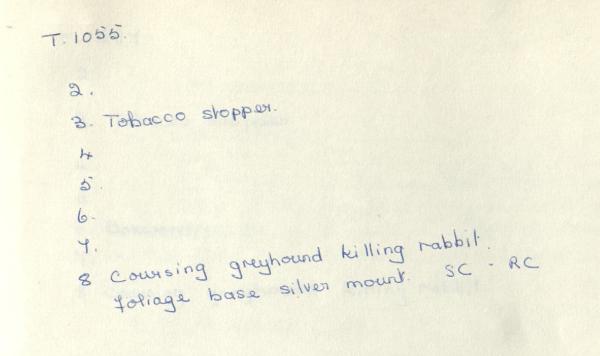 T. 1055.
2.
3. Tobacco stopper.
4
5.
6.
7.
8 Coursing greyhound killing rabbit.
foliage base silver mount. SC - RC